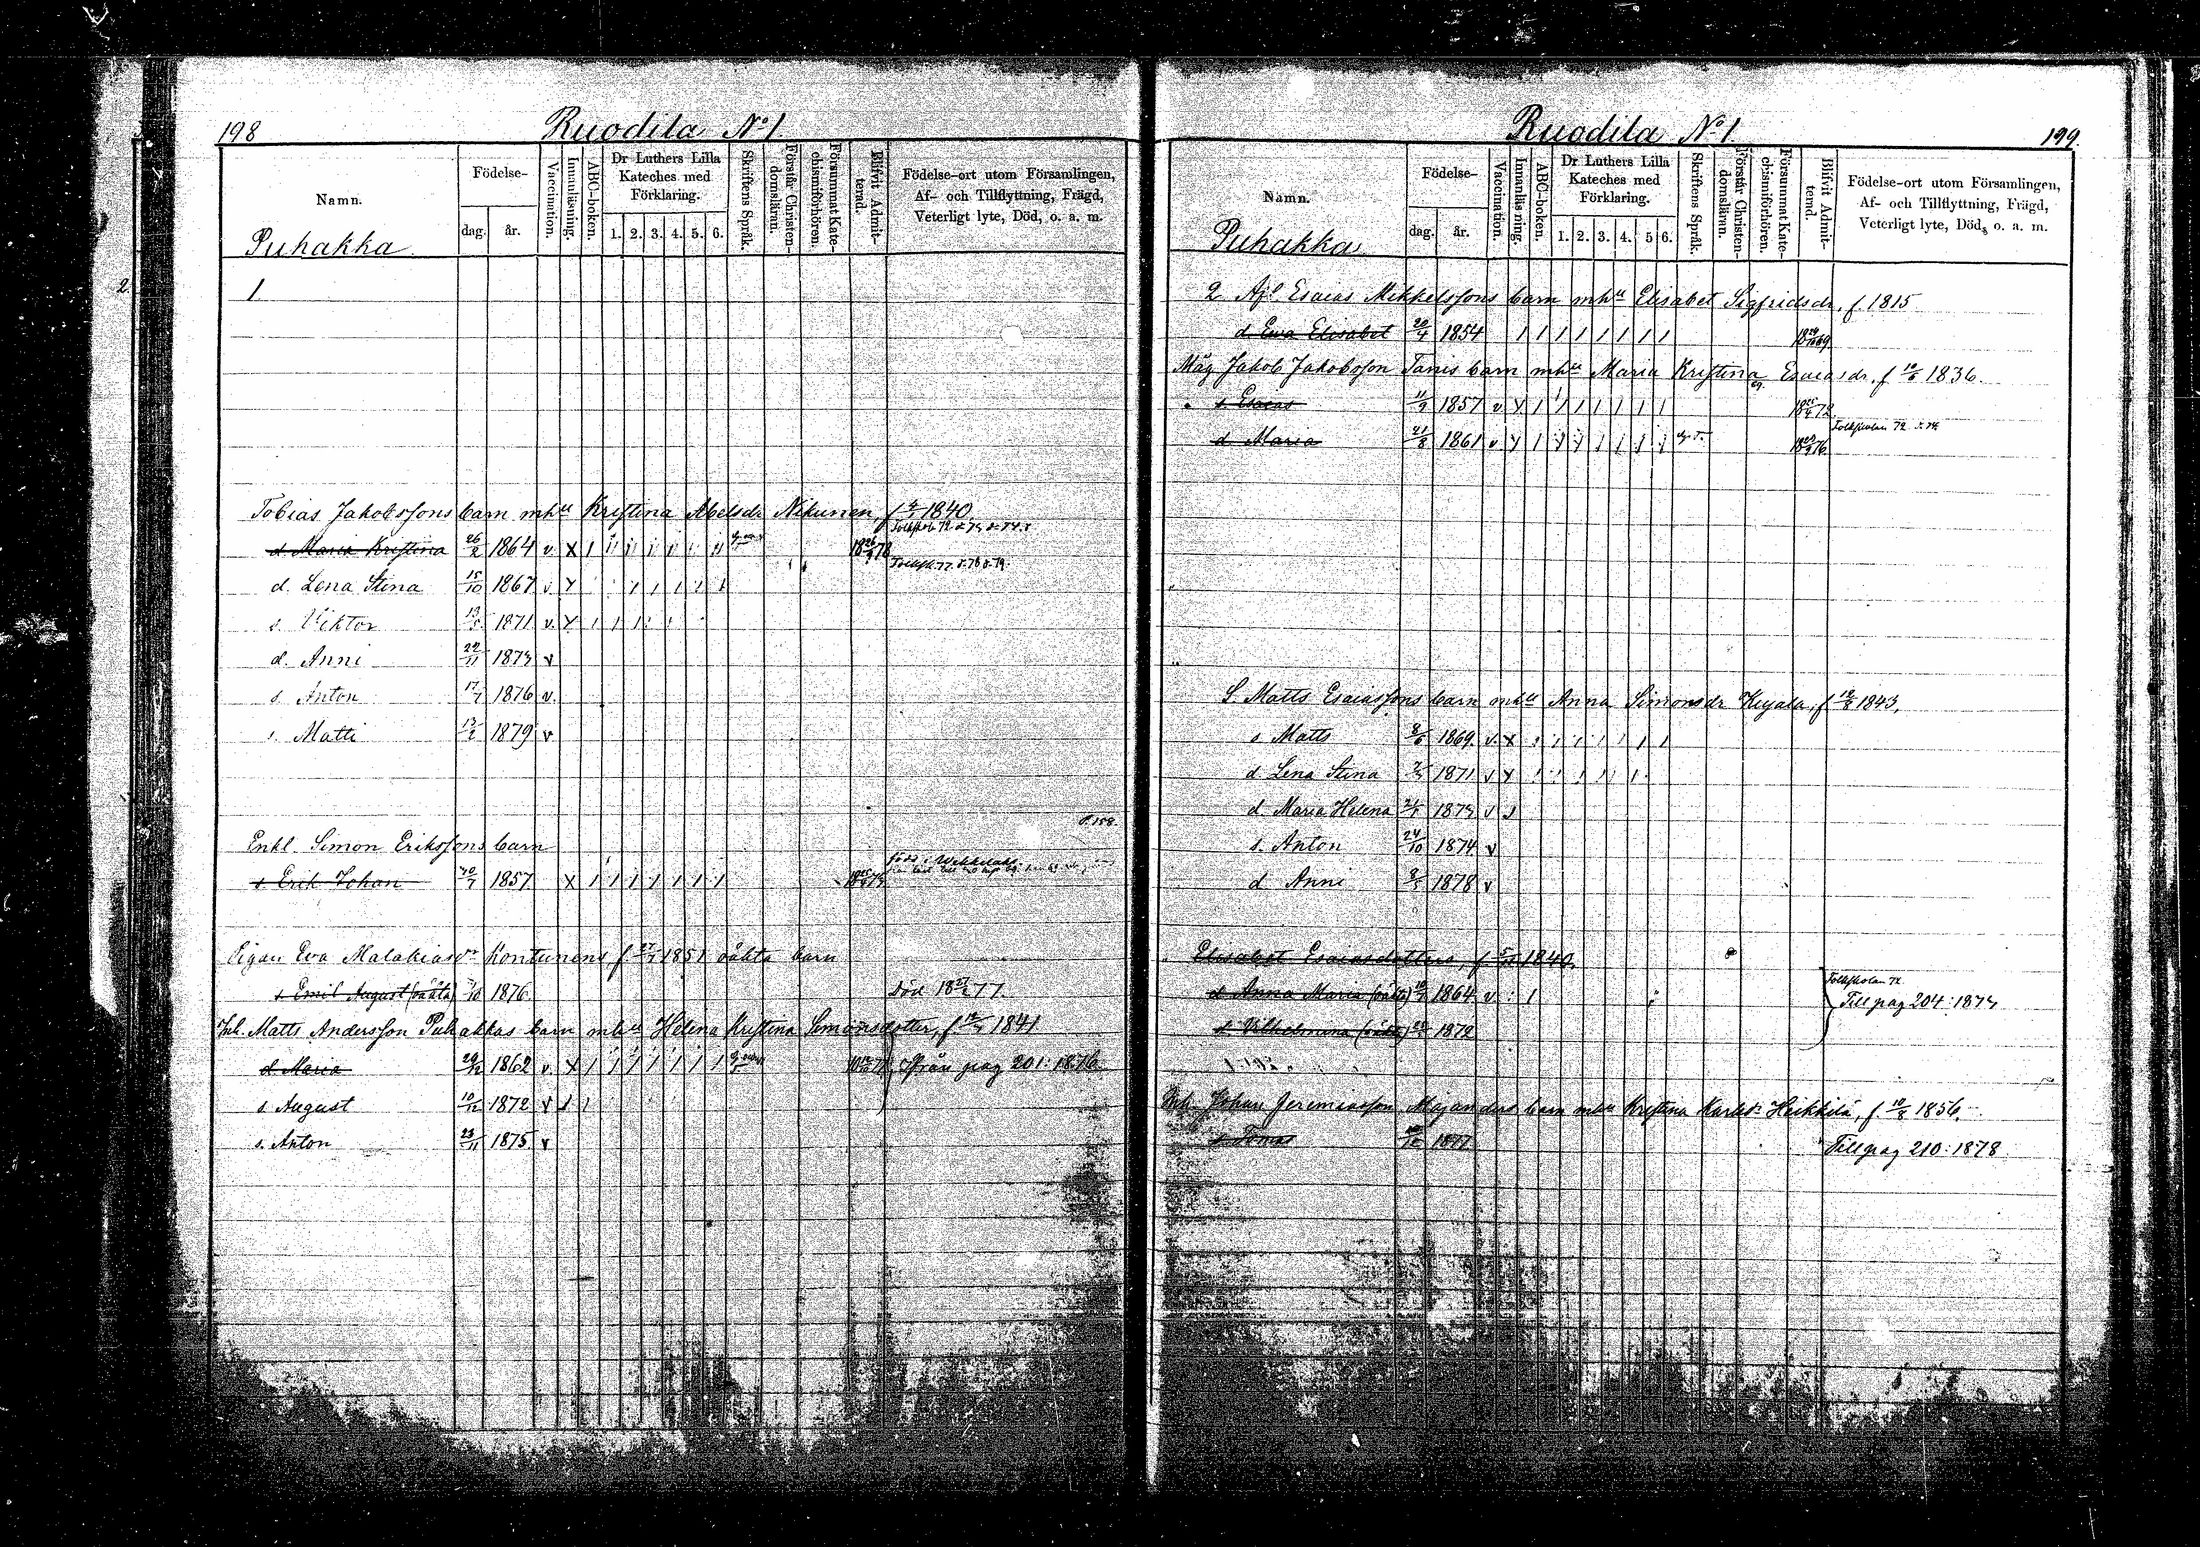 198
Ruodila No 1.
Namn.
Födelse-
dag.
år.
Vaccination.
Innanläsning.
ABC-boken.
Dr Luthers Lilla
Kateches med
Förklaring.
1. 2. 3. 4. 5. 6.
Skriftens Språk.
Förstår Christen-
domsläran.
Försummat Kate-
chismiförhören.
Blifvit Admit-
terad.
Födelse-ort utom Församlingen,
Af- och Tillflyttning, Frägd,
Veterligt lyte, Död, o. a. m.
Puhakka
1
Tobias Jakobssons barn mhu Kristina Abelsdr Nikunen f 1840
d. Maria Kristina 26/2 1864 v. X
d. Lena Stina 15/10 1867 v. X
s. Viktor 1871 v. X
d. Anni 22/11 1873 v
s. Anton 17/7 1876 v.
s. Matti 13/2 1879 v
p. 158
Enkl. Simon Erikssons barn
s. Erik Johan 30/7 1857 X
född i
Eva Malakiasdr Kontunens f 1851 oäkta barn
s. Emil August (oäkta) 1876 Död 1877.
Inh. Matts Andersson Puhakkas barn mhu Helena Kristina Simonsdotter, f 1841
d. Maria 29/12 1862 v. X Ifrån pag 201: 1876
s. August 10/12 1872 v
s. Anton 23/11 1875 v
Ruodila No 1.
199.
Namn.
Födelse-
dag.
år.
Vaccination.
Innanläsning.
ABC-boken.
Dr Luthers Lilla
Kateches med
Förklaring.
1. 2. 3. 4. 5 6.
Skriftens Språk.
Förstår Christen-
domsläran.
Försummat Kate-
chismiförhören.
Blifvit Admit-
terad.
Födelse-ort utom Församlingen,
Af- och Tillflyttning, Frägd,
Veterligt lyte, Död, o. a. m.
Puhakka
2 Esaias Mikkelssons barn mhu Elisabet Sigfridsdr, f. 1815
d. Ewa Elisabet 20/4 1854
Måg Jakob Jakobsson Tanis barn mhu Maria Kristina Esaiasdr, f 1836.
s. Esaias 11/9 1857 v. X
Folkskolan 72
d. Maria 21/8 1861 v X
S. Matts Esaiassons barn mhu Anna Simonsdr f 1843,
s Matts 1869. v. X
d. Lena Stina 1871 v X
d. Maria Helena 1873 v
s. Anton 24/10 1874 v
d Anni 1878 v
Elisabet Esaiasdotters, f 1840,
d. Anna Maria (oäkta) 1864 v
Folkskolan 72
Till pag 204: 1873
d. Vilhelmina (oäkta) 1872
Inh. Johan Jeremiasson Majanders barn mhu Kristina Karlsdr Heikkilä, f 10/8 1856
s. Tomas 1877
Till pag 210: 1878